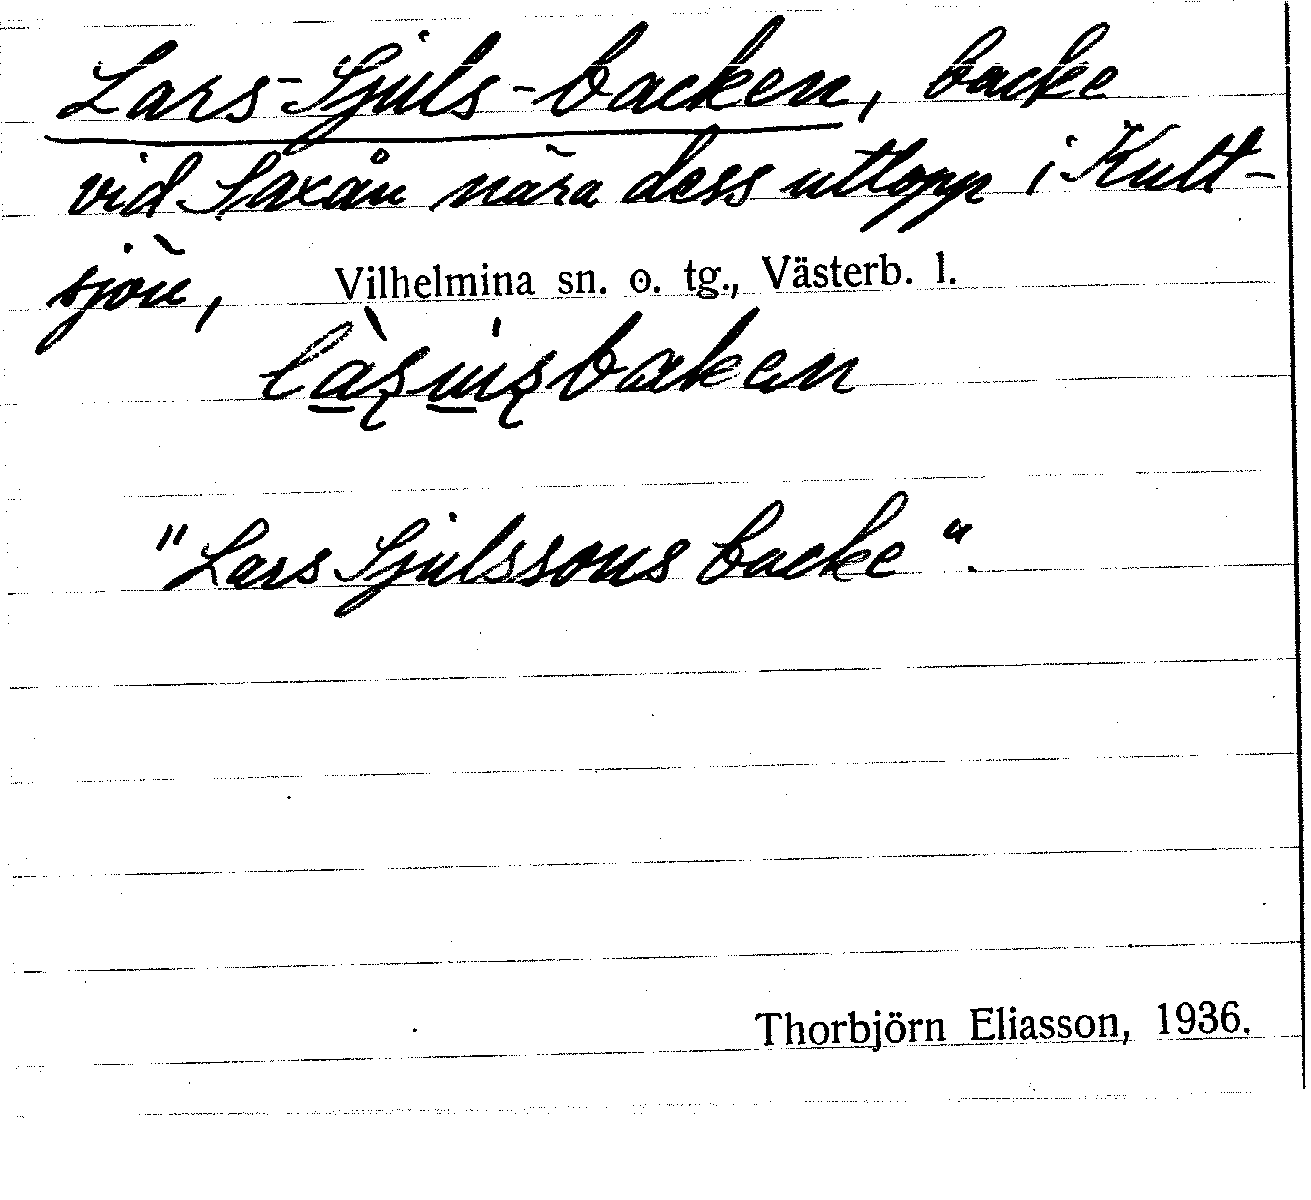 Lars-Sjuls-backen, backe
vid Saxån nära dess utlopp i Kult-
sjön, Vilhelmina sn. o. tg., Västerb. l.
"Lars Sjulssons backe".
Thorbjörn Eliasson, 1936.